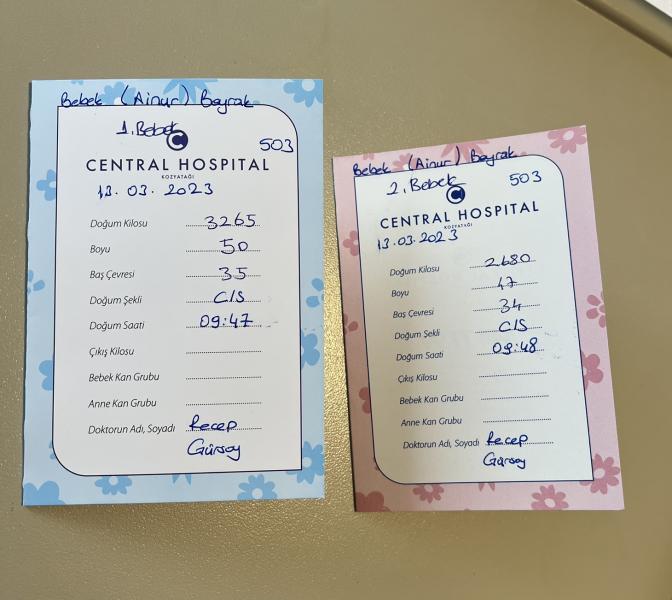 Bebek (Ainur) Bayrak
1. Bebek
503
CENTRAL HOSPITAL
KOZYATAĞI
13.03.2023
Doğum Kilosu 3265
Boyu 50
Baş Çevresi 35
Doğum Şekli C/S
Doğum Saati 09:47
Çıkış Kilosu
Bebek Kan Grubu
Anne Kan Grubu
Doktorun Adı, Soyadı Recep
Gürsoy
Bebek (Ainur) Bayrak
2. Bebek
503
CENTRAL HOSPITAL
KOZYATAĞI
13.03.2023
Doğum Kilosu 2680
Boyu 47
Baş Çevresi 34
Doğum Şekli C/S
Doğum Saati 09:48
Çıkış Kilosu
Bebek Kan Grubu
Anne Kan Grubu
Doktorun Adı, Soyadı Recep
Gürsoy